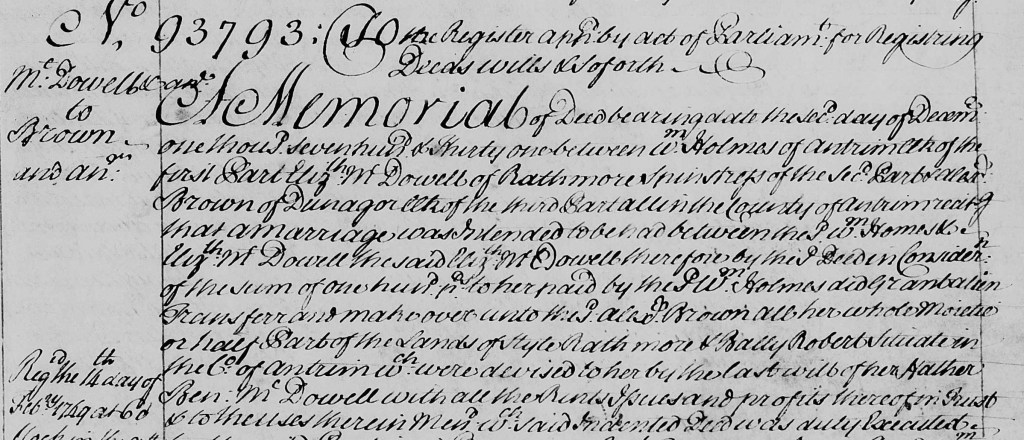 No. 93793: To the Register appd. by act of Parliamt. for Registring
Deeds wills & soforth
Mc. Dowell & anr.
to
Brown
and anr.
A Memorial of Deed bearing date the Secd. day of Decemr.
one thoud. seven hund. & thirty one between Wm. Holmes of Antrim Clk of the
first Part Elizth. Mc Dowell of Rathmore Spinstress of the Secd. Part & Alexr.
Brown of Dunagor Clk of the third Part all in the County of Antrim recitg
that a marriage was Intended to be had between the sd. Wm. Homes &
Elizth. Mc Dowell the said Elizth. Mc Dowell therefore by the sd. Deed in Considern.
of the sum of one hund. pds. to her paid by the sd. Wm. Holmes did Grant alien
Transferr and make over unto the sd. Alexr. Brown all her whole Moietie
or half Part of the Lands of Style Rathmore & Bally Robert Situate in
the Co. of Antrim wch. were devised to her by the last will of her Father
Ben: Mc Dowell with all the Rents Issues and profits thereof in Trust
& to the uses therein Mend. wch. said Indented Deed was duly Executed
Regd. the 14th day of
Febry. 1749 at 6 o
Clock in the